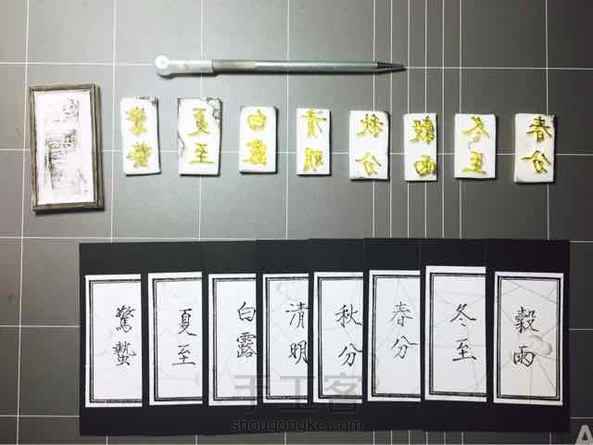 驚蟄
夏至
白露
清明
秋分
穀雨
冬至
春分
驚蟄
夏至
白露
清明
秋分
春分
冬至
穀雨
手工客
shougongke.com
A